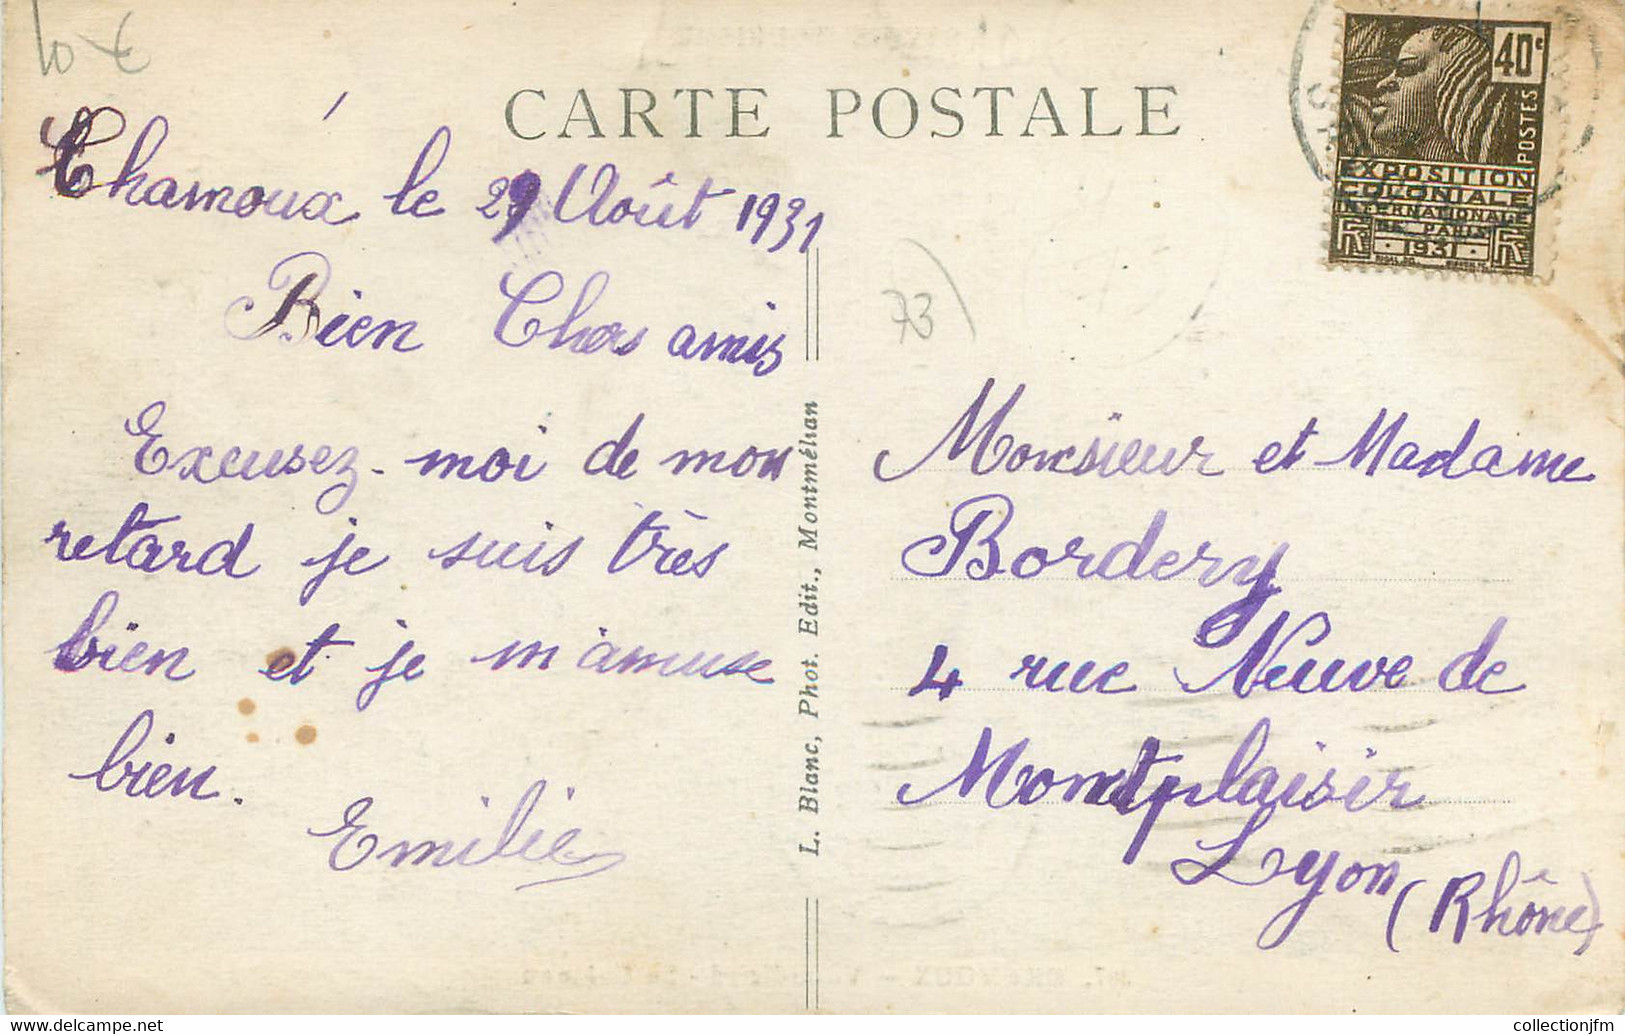 10 €
CARTE POSTALE
Chamoux le 29 Août 1931
Bien Chers amis
Excusez-moi de mon
retard je suis très
bien et je m'amuse
bien.
Emilie
L. Blanc, Phot. Edit., Montmélian
73
40c
POSTES
EXPOSITION
COLONIALE
INTERNATIONALE
DE PARIS
1931
RF
RF
Monsieur et Madame
Bordery
4 rue Neuve de
Montplaisir
Lyon
(Rhône)
collectionjfm